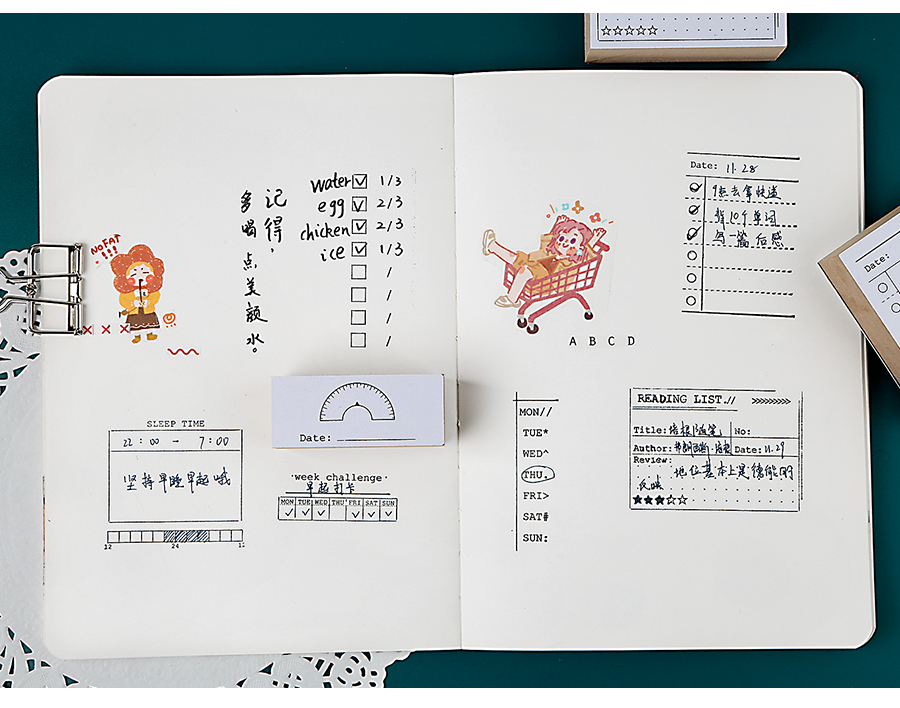 NO FAT
!!!
记得，
多喝点美颜水。
water 1/3
egg 2/3
chicken 2/3
ice 1/3
/
/
/
/
SLEEP TIME
22:00 → 7:00
坚持早睡早起哦
12 24 12
Date:
·week challenge·
早起打卡
MON TUE WED THU FRI SAT SUN
Date: 11.28
9点去拿快递
背10个单词
写一篇后感
A B C D
MON//
TUE*
WED^
THU.
FRI>
SAT#
SUN:
READING LIST.// >>>>>>>>>
Title: 培根随笔 No:
Author: 培根 Date: 11.29
Review:
地位基本上是德能的
反映
★★★☆☆☆
☆☆☆☆☆
Date: